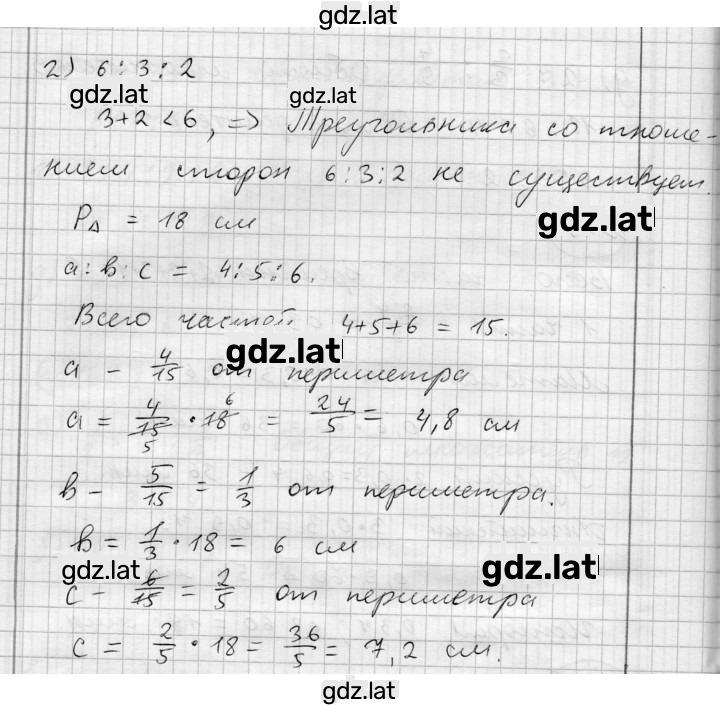 gdz.lat
2) 6 : 3 : 2
gdz.lat gdz.lat
3+2 < 6, => Треугольника со отноше-
нием сторон 6:3:2 не существует.
gdz.lat
P△ = 18 см
a : b : c = 4 : 5 : 6.
Всего частей 4+5+6 = 15.
gdz.lat
a - 4/15 от периметра
a = 4/15 5 · 18 6 = 24/5 = 4,8 см
b - 5/15 = 1/3 от периметра.
b = 1/3 · 18 = 6 см
gdz.lat gdz.lat
c - 6/15 = 2/5 от периметра
c = 2/5 · 18 = 36/5 = 7,2 см.
gdz.lat